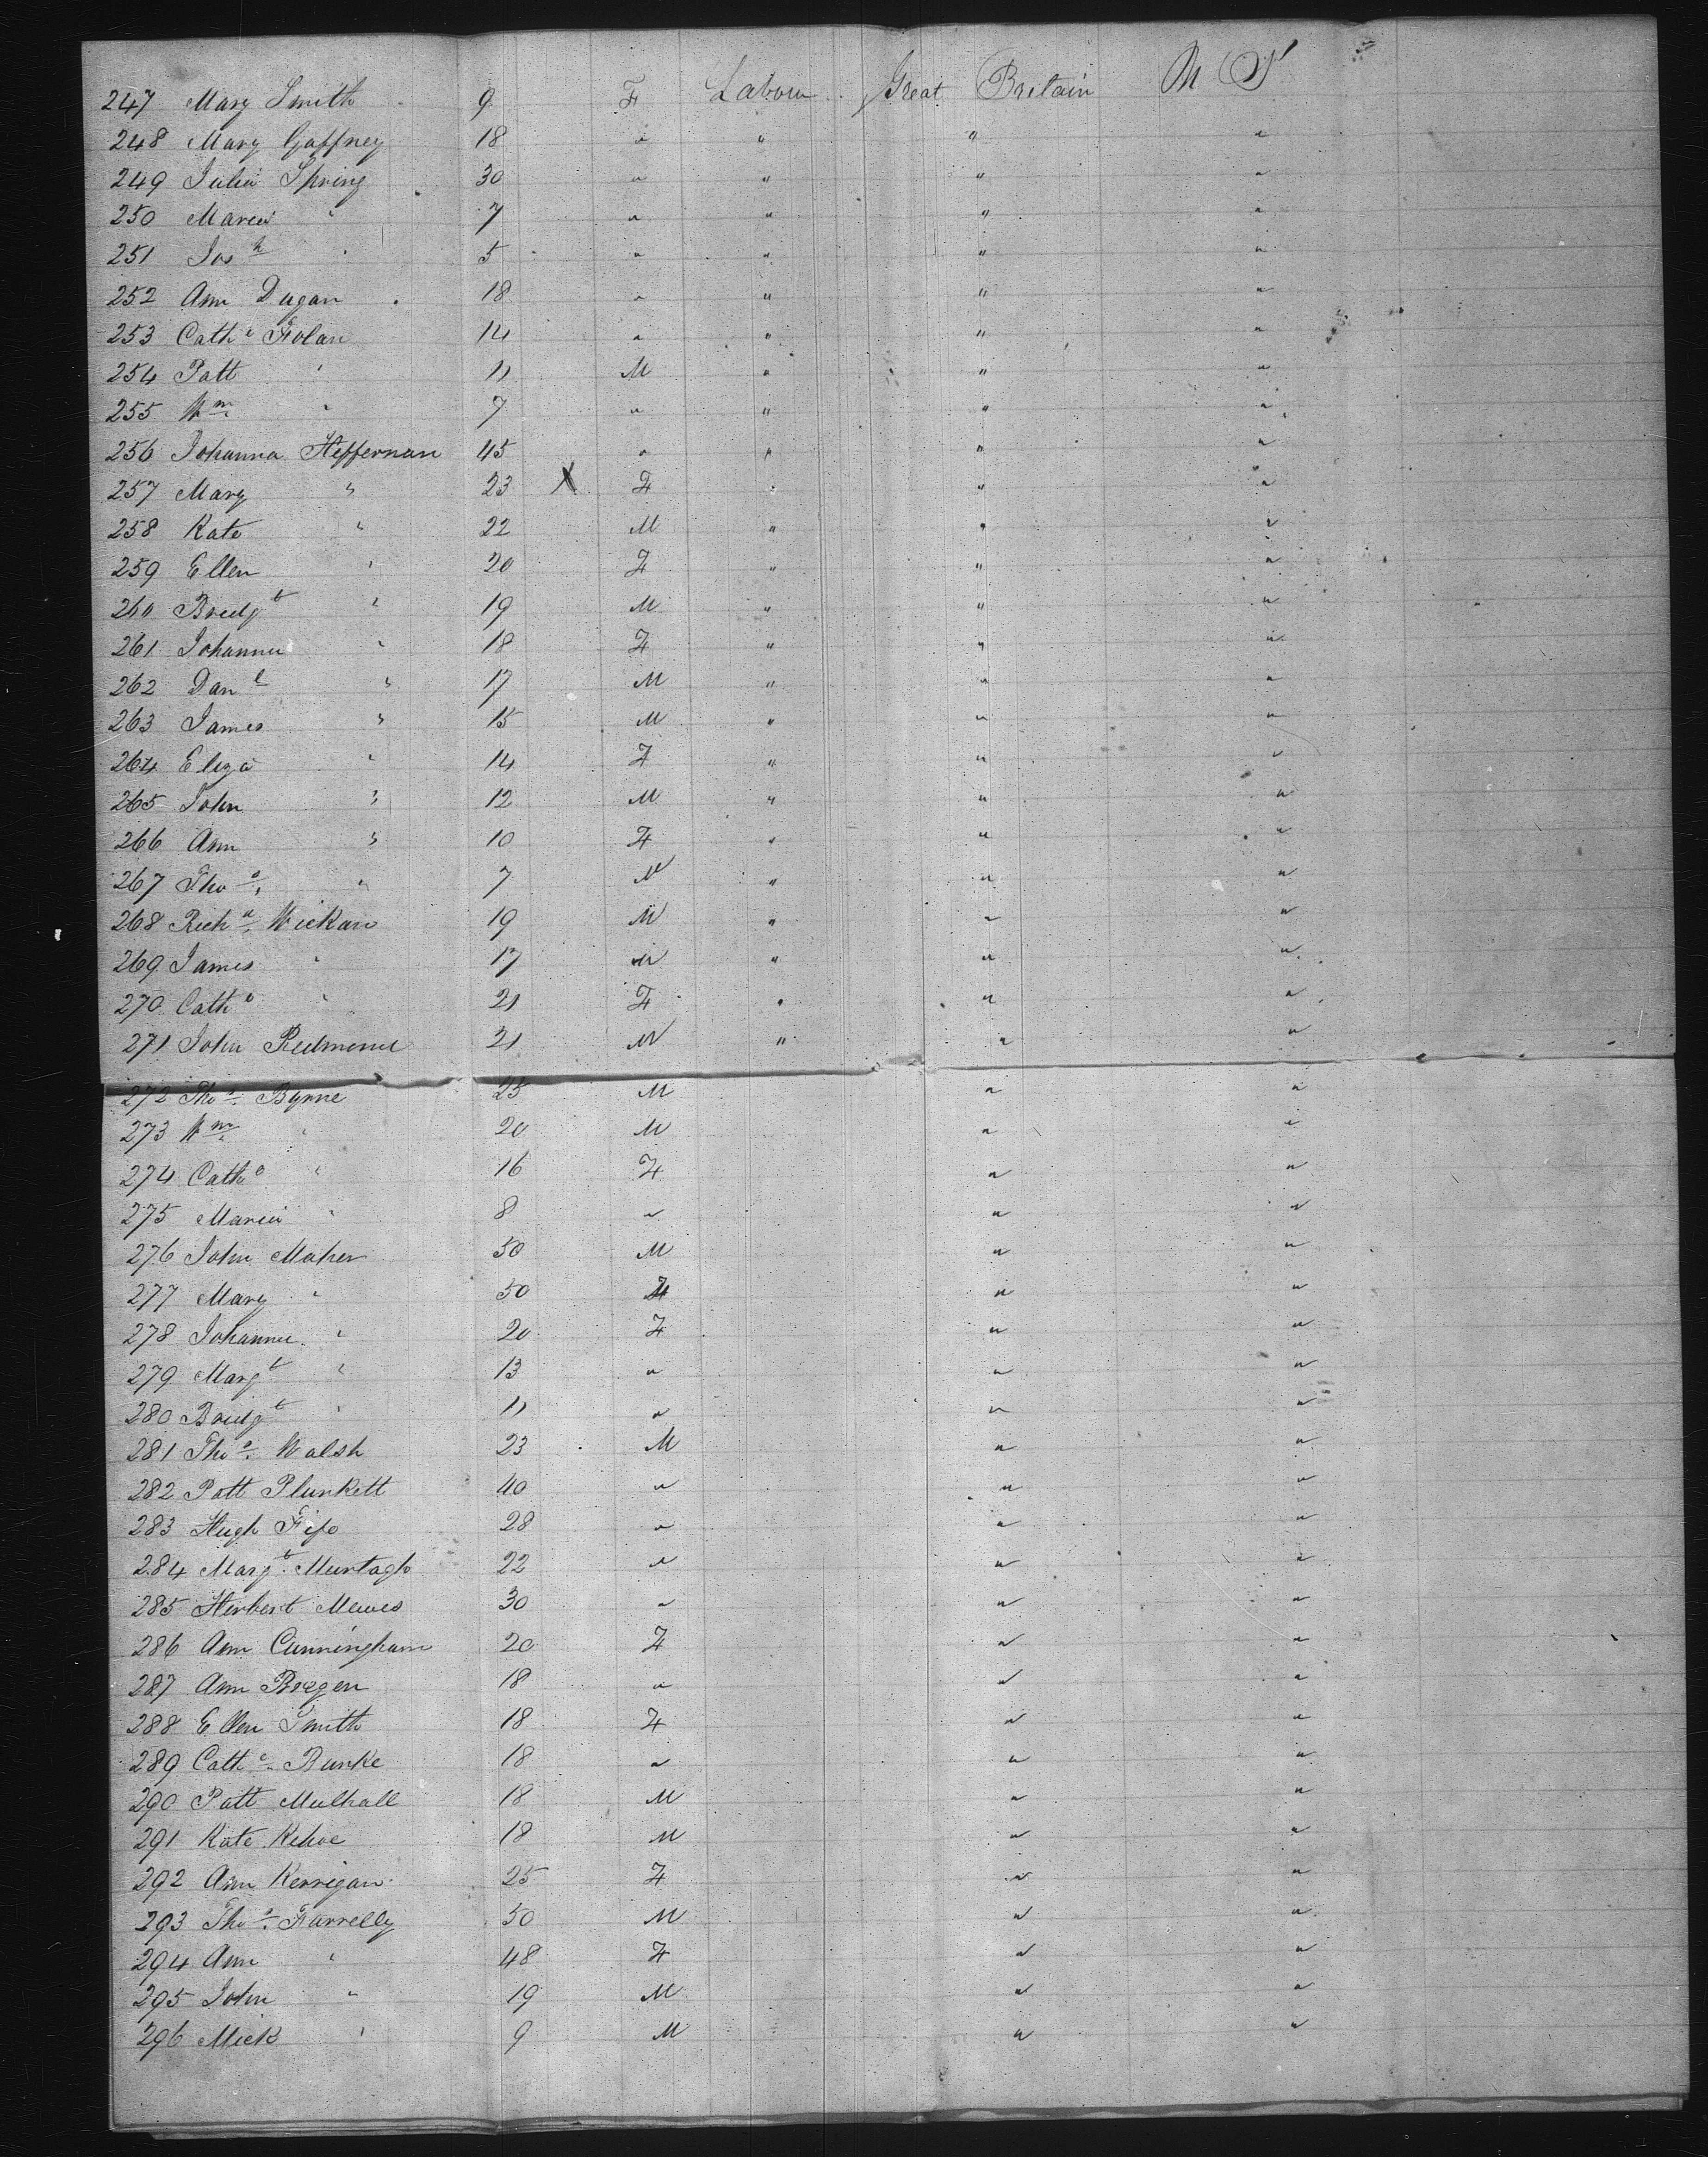 247 Mary Smith 9 F Labour Great Britain U S
248 Mary Gaffney 18 " " " "
249 Julia Spring 30 " " " "
250 Maria " 7 " " " "
251 Josh " 5 " " " "
252 Ann Dugan 18 " " " "
253 Cathe Folan 14 " " " "
254 Patt " 11 M " " "
255 Wm " 7 " " " "
256 Johanna Heffernan 45 " " " "
257 Mary " 23 X F " " "
258 Kate " 22 M " " "
259 Ellen " 20 F " " "
260 Bridgt " 19 M " " "
261 Johanna " 18 F " " "
262 Danl " 17 M " " "
263 James " 15 M " " "
264 Eliza " 14 F " " "
265 John " 12 M " " "
266 Ann " 10 F " " "
267 Thos " 7 M " " "
268 Richd Wickan 19 M " " "
269 James " 17 M " " "
270 Cathe " 21 F " " "
271 John Redmond 21 M " " "
272 Thos Byrne 25 M " "
273 Wm " 20 M " "
274 Cathe " 16 F " "
275 Maria " 8 " " "
276 John Maher 50 M " "
277 Mary " 50 F " "
278 Johanna " 20 F " "
279 Margt " 13 " " "
280 Bridgt " 11 " " "
281 Thos Walsh 23 M " "
282 Patt Plunkett 40 " " "
283 Hugh Fife 28 " " "
284 Margt Murtagh 22 " " "
285 Herbert Mewes 30 " " "
286 Ann Cunningham 20 F " "
287 Ann Bregen 18 " " "
288 Ellen Smith 18 F " "
289 Cathe Burke 18 " " "
290 Patt Mulhall 18 M " "
291 Kate Kehoe 18 M " "
292 Ann Kerrigan 25 F " "
293 Thos Farrelly 50 M " "
294 Ann " 48 F " "
295 John " 19 M " "
296 Mick " 9 M " "